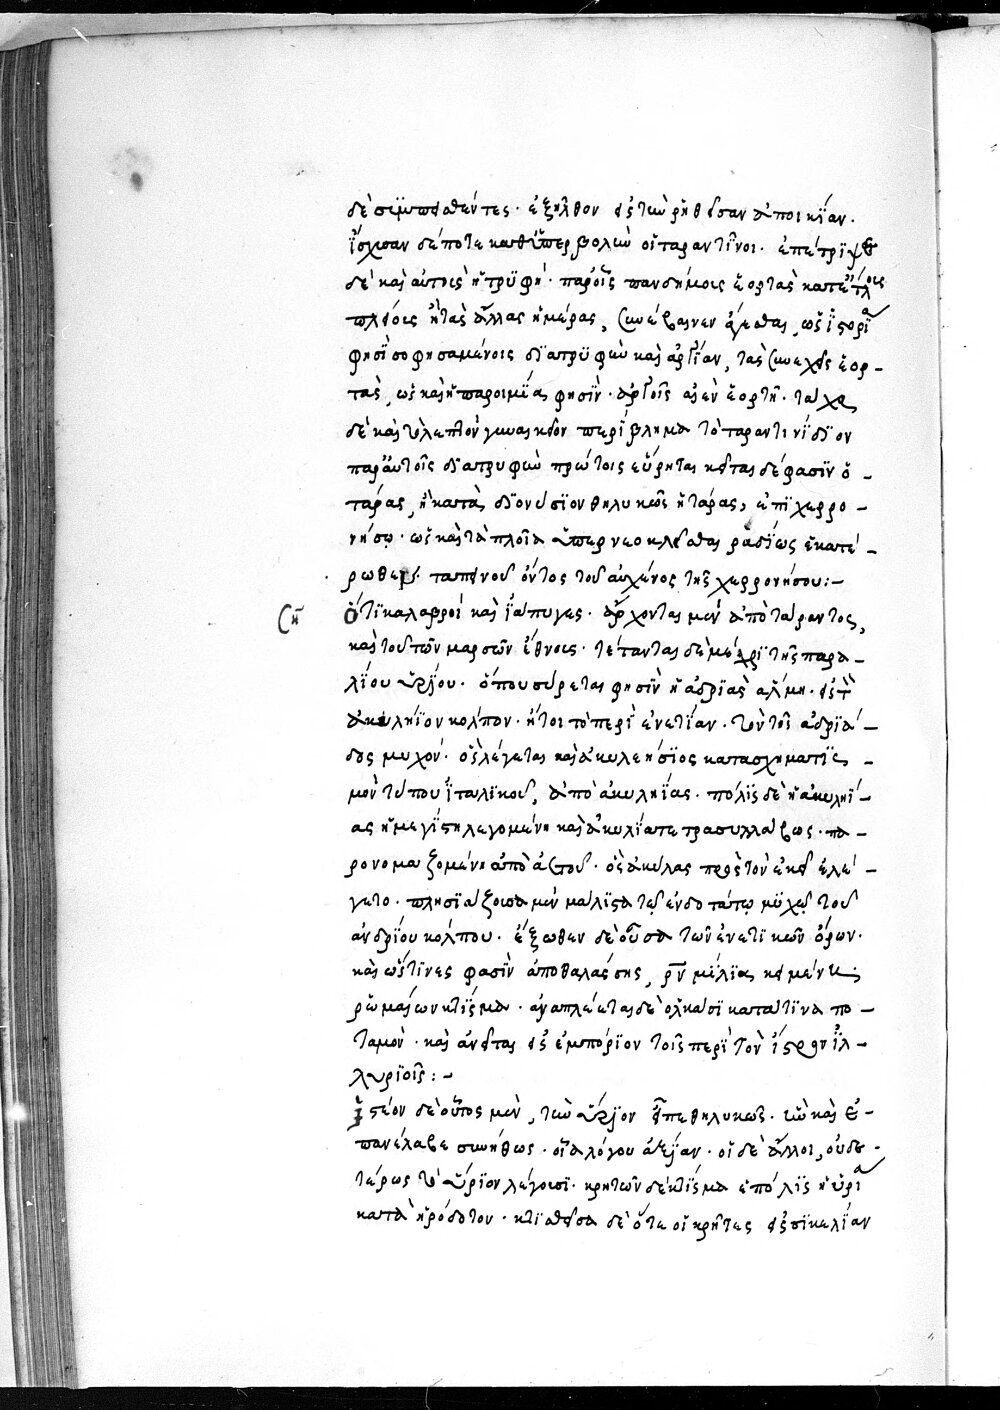 δὲ συμπεισθέντες· ἐξῆλθον εἰς τὴν ῥηθεῖσαν ἀποικίαν.
ἴσχυσαν δέ ποτε καθ' ὑπερβολὴν οἱ ταραντῖνοι· ἐπέτριψε
δὲ καὶ αὐτοὺς ἡ τρυφή· παρ' οἷς πανδήμους ἑορτὰς κατ' ἔτος
πλείους ἢ τὰς ἄλλας ἡμέρας, συνέβαινεν ἄγεσθαι, ὡς ἱστορία
φησὶ σοφισαμένοις διὰ τρυφὴν καὶ ἀργίαν, τὰς συνεχεῖς ἑορ-
τάς, ὡς καὶ ἡ παροιμία φησίν· ἀργοῖς αἰὲν ἑορτή· τάχα
δὲ καὶ τὸ λεπτὸν γυναικεῖον περίβλημα τὸ ταραντινίδιον
παρ' αὐτοῖς διὰ τρυφὴν πρώτοις εὕρηται κεῖται δέ φασιν ὁ
τάρας, ἢ κατὰ διονύσιον θηλυκῶς ἡ τάρας, ἐπὶ χερρο-
νήσῳ· ὡς καὶ τὰ πλοῖα ὑπερνεολκεῖσθαι ῥᾳδίως ἑκατέ-
ρωθεν· ταπεινοῦ ὄντος τοῦ αὐχένος τῆς χερρονήσου:-
ση ὅτι καλαβροὶ καὶ ἰάπυγες· ἄρχονται μὲν ἀπὸ τάραντος,
καὶ τοῦ τῶν μαρσῶν ἔθνους· τέτανται δὲ μέχρι τῆς παρα-
λίου ὑρίου· ὅπου σύρεται φησὶν ἡ ἀδριὰς ἅλμη· εἰς τὸν
ἀκυλήιον κόλπον· ἤτοι τὸ περὶ ἐνετίαν· τὸν τοῦ ἀδριά-
δος μυχόν· ὃς λέγεται καὶ ἀκυλήσιος κατασχηματισ-
μὸν τύπου ἰταλικοῦ, ἀπὸ ἀκυληίας· πόλις δὲ ἡ ἀκυληί-
ας ἡ μεγίστη λεγομένη καὶ ἀκυλία τετρασυλλάβως· πα-
ρονομαζομένη ἀπὸ ἀετοῦ· ὃς ἀκύλας πρὸς τῶν ἐκεῖ ἐλέ-
γετο· πλησιάζουσα μὲν μάλιστα τῷ ἐνδοτάτῳ μυχῷ τοῦ
ἀνδρίου κόλπου· ἔξωθεν δὲ οὖσα τῶν ἐνετικῶν ὅρων·
καὶ ὥς τινες φασὶν ἀπὸ θαλάσσης, ρν μίλια κειμένη·
ῥωμαίων κτίσμα· ἀναπλέεται δὲ ὁλκάσι κατά τινα πο-
ταμόν· καὶ ἀνεῖται εἰς ἐμπόριον τοῖς περὶ τὸν ἴστρον ἰλ-
λυριοῖς:-
ἰστέον δὲ οὗτος μέν, τὴν ὕριον εἶπε θηλυκῶς· ἣν καὶ ἐ-
πανέλαβε συνήθως· οἷα λόγου ἀξίαν· οἱ δὲ ἄλλοι, οὐδε-
τέρως τὸ ὕριον λέγουσι· κρητῶν δὲ κτίσμα ἡ πόλις ἡ ὑρία
κατὰ ἡρόδοτον· κτισθεῖσα δὲ ὅτε οἱ κρῆτες εἰς σικελίαν